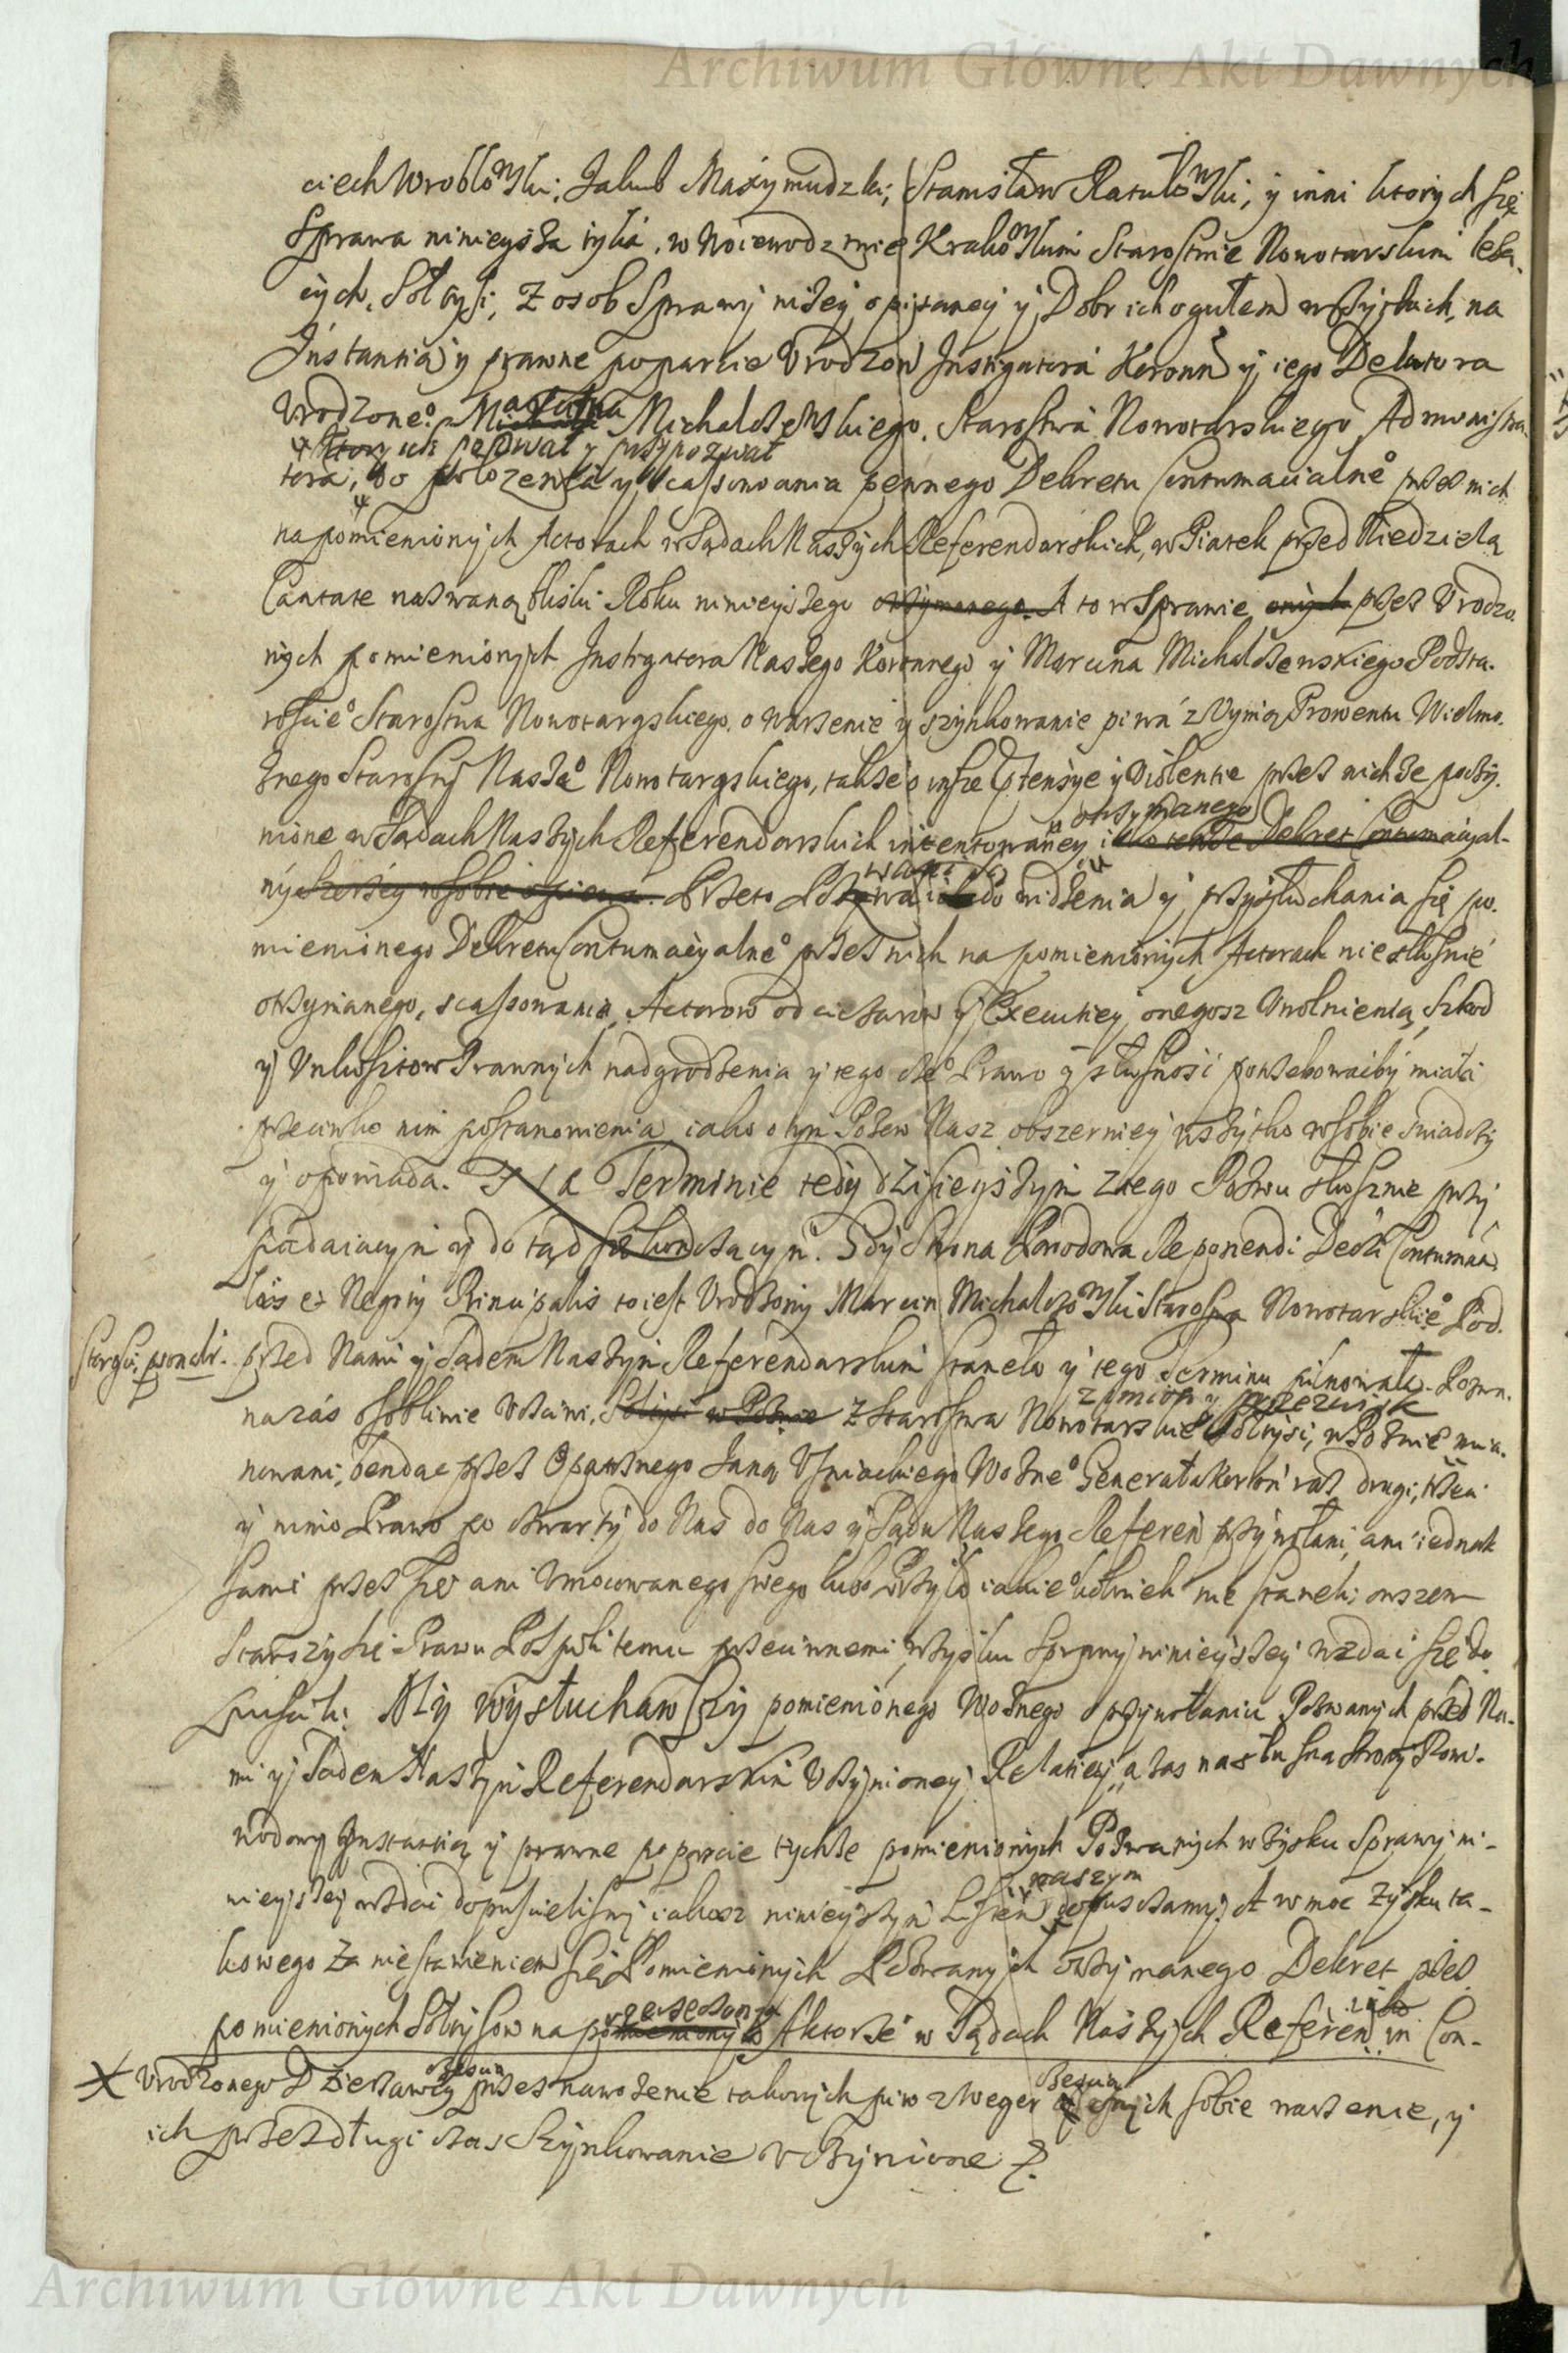 Archiwum Główne Akt Dawnych
ciech Wroblowski, Jakub Maxymudzki, Stanisław Ratułowski, y inni ktorych się
Sprawa ninieysza tyka, w Woiewodztwie Krakowskim Starostwie Nowotarskim leżą-
cych, Sołtysi, z osob Sprawy niżey opisaney y Dobr ich ogułem wszystkich, na
Instantią y prawne poparcie Vrodzon Instigatora Koronn y iego Delatora
Vrodzone° Marcina Michalczewskiego, Starostwa Nowotarskiego Administra-
ktory ich pozwał y przypozwał
tora, do położenia y scassowania pewnego Dekretu Contumacialne° przez nich
na pomienionych Actorach w Sądach Naszych Referendarskich, w Piątek przed Niedzielą
Cantate nazwaną blisko Roku ninieyszego otrzymanego. A to w Sprawie onych przez Vrodzo-
nych pomienionych Instygatora Naszego Koronnego y Marcina Michalczewskiego Podsta-
roście° Starostwa Nowotargskiego o warzenie y szynkowanie piwa z Vymą Prowentu Wielmo-
żnego Starosty Nasze° Nowotargskiego, także o insze Prtensye y Violentie przez nichże poczy-
otrzymanego
nione w Sądach Naszych Referendarskich intentowaney, iako tenże Dekret Contumacyal-
ny szerzey w sobie opiewa. Przeto do widzenia y przysłuchania się po-
mienionego Dekretu Contumacyalne° przez nich na pomienionych Actorach niesłusznie
otrzymanego, scassowania, Actorow od ciężarow y Exekutiey onegosz Vwolnienia, Szkod
y Vnkosztow Prawnych nadgrodzenia y tego cze° Prawo y słuszność potrzebowałby miała
przeciwko nim postanowienia, iako o tym Pozew Nasz obszerniey wszytko w sobie świadczy
y opowiada. Na Terminie tedy dzisieyszym z tego Pozwu słusznie przy
padaiącym y do tąd się kończącym. Gdy Strona Powodowa Reponendi Decti Contumacia
lis et Negoty Principalis to iest Vrodzony Marcin Michalczowski Starostwa Nowotarskie° Pod-
starości, personalr. przed Nami y Sądem Naszym Referendarskim staneła y tego Terminu pilnowała. Pozwa-
z imion y przezwisk
na zas osobliwie Vczciwi, Sołtysi w Pozwie z Starostwa Nowotarskie° Sołtysi, w Pozwie mia-
nowani, bendąc przez Opatrznego Jana Vzniackiego Woźne° Generała Koron raz drugi, trzeci
y mimo Prawo po czwarty do Nas do Nas y Sądu Naszego Referen przywołani, ani iednak
sami przez się ani Vmocowanego swego lubo iakie° kolwiek nie staneli, owszem
stawszy się Prawu Pospolitemu przeciwnemi, w zysku sprawy ninieyszey wzdać się do
puścili. My wysłuchawszy pomienionego Woźnego o przywołaniu Pozwanych przed Na-
mi y Sądem Naszym Referendarskim Vczynioney Relatiey, a zas na słuszną strony Powo-
wodowy Instantią y prawne poparcie tychże pomienionych Pozwanych w zysku Sprawy ni-
naszym
nieyszey wzdać dopuscielismy iakosz ninieyszym Listem dopuszczamy. A w moc zysku ta-
kowego za niestawieniem się Pomienionych Pozwanych otrzymanego Dekret przez
rzeczonym
pomienionych Sołtysow na pomienionych Aktorze w Sądach Naszych Referen in Con-
Vrodzonego Dzierżawcy przez nawożenie takowych piw z Weger onych sobie warzenie, y
ich przez długi czas Szynkowanie vczynione
Archiwum Główne Akt Dawnych